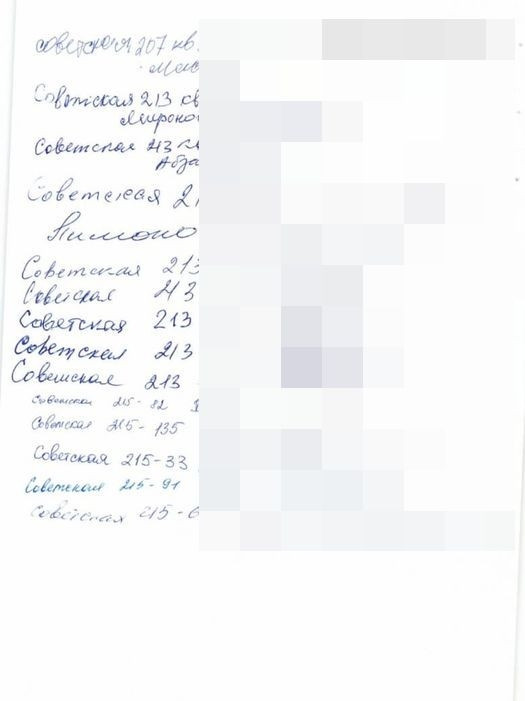 Советская 207 кв.
Советская 213 кв
Советская 213
Советская 21
Советская 213
Советская 213
Советская 213
Советская 213
Советская 213
Советская 215-82
Советская 215-135
Советская 215-33
Советская 215-91
Советская 215-6